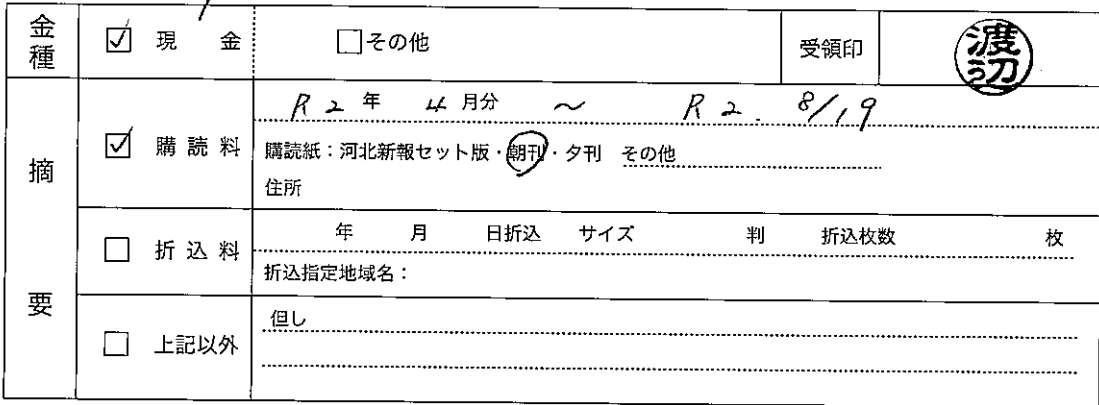 金種 ☑ 現金 □その他 受領印 渡辺
R2年 4月分 ～ R2. 8/19
摘要 ☑ 購読料 購読紙：河北新報セット版・朝刊・夕刊 その他
住所
□ 折込料 年 月 日折込 サイズ 判 折込枚数 枚
折込指定地域名：
□ 上記以外 但し